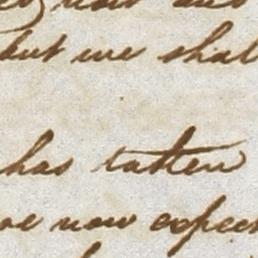 but we shal
has tatten
we now expec